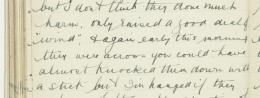 but I don't think they done much
harm, only raised a good deal of
"wind". Again early this morning
they were across you could have
almost knocked them down with
a stick but I'm hanged if they